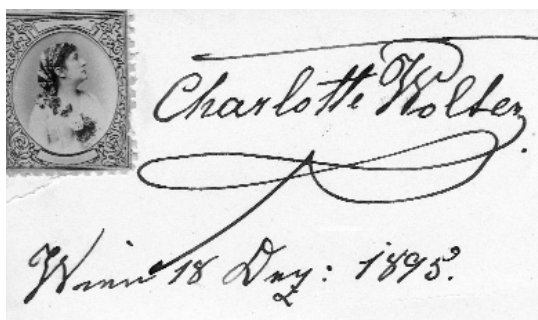 Charlotte Wolter.
Wien 18 Dez: 1895.